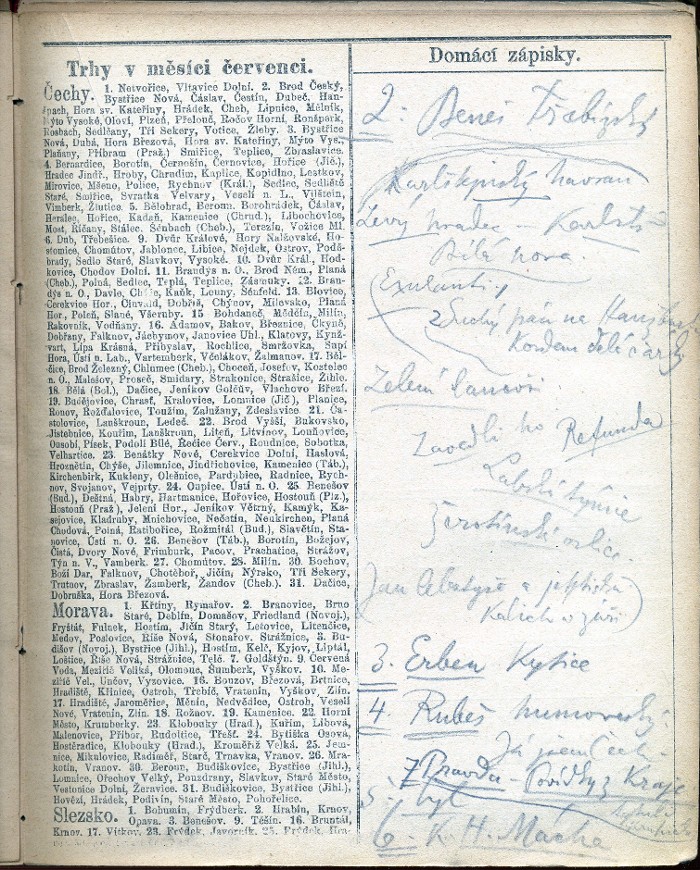 Trhy v měsíci červenci.
Čechy. 1. Netvořice, Vltavice Dolní. 2. Brod Český,
Bystřice Nová, Čáslav, Čestín, Dubeč, Han-
Hora sv. Kateřiny, Hrádek, Cheb, Lipnice, Mělník,
Mýto Vysoké, Oloví, Plzeň, Přelouč, Ročov Horní, Ronšpark,
Rosbach, Sedlčany, Tři Sekery, Votice, Žleby. 3. Bystřice
Nová, Dubá, Hora Březová, Hora sv. Kateřiny, Mýto Vys.,
Plaňany, Příbram (Praž.) Smiřice, Teplice, Zbraslavice.
4. Bernardice, Borotín, Černošín, Černovice, Hořice (Jič.),
Hradec Jindř., Hroby, Chrudim, Kaplice, Kopidlno, Lestkov,
Mirovice, Mšeno, Police, Rychnov (Král.) Sedlec, Sedliště
Staré, Smiřice, Svratka Velvary, Veselí n. L., Vilštein,
Vimberk, Žlutice. 5. Bělohrad, Beroun, Borohrádek, Čáslav,
Herálec, Hořice, Kadaň, Kamenice (Chrud.), Libochovice,
Most, Říčany, Stálec, Šénbach (Cheb.), Terezín, Vožice Ml.
6. Dub, Třebešice. 9. Dvůr Králové, Hory Nalžovské, Ho-
stomice, Chomútov, Jablonec, Libice, Nejdek, Ostrov, Podě-
brady, Sedlo Staré, Slavkov, Vysoké. 10. Dvůr Král., Hod-
kovice, Chodov Dolní. 11. Brandýs n. O., Brod Něm., Planá
(Cheb.), Polná, Sedlec, Teplá, Teplice, Zásmuky. 12. Bran-
dýs n. O., Davle, Kaňk, Louny, Šénfeld. 13. Blovice,
Cerekvice Hor., Cinvald, Dobříš, Chýnov, Milevsko, Planá
Hor., Poleň, Slané, Všeruby. 15 Bohdaneč, Mědčín, Milín,
Rakovník, Vodňany. 16. Adamov, Bakov, Březnice, Čkyně,
Dobřany, Falknov, Jáchymov, Janovice Uhl., Klatovy, Kynž-
vart, Lípa Krásná, Přibyslav, Rochlice, Smržovka, Supí
Hora, Ústí n. Lab., Vartemberk, Včelákov, Žalmanov. 17. Běl-
čice, Brod Železný, Chlumec (Cheb.), Choceň, Josefov, Kostelec
n. O., Malešov, Proseč, Smidary, Strakonice, Strašice, Žihle.
18. Bělá (Bol.), Dačice, Jeníkov Golčův, Vlachovo Březí.
19. Budějovice, Chrasť, Kralovice, Lomnice (Jič.), Planice,
Ronov, Rožďalovice, Toužim, Zalužany, Zdeslavice. 21. Ča-
stolovice, Lanškroun, Ledeč. 22. Brod Vyšší, Bukovsko,
Jistebnice, Kouřim, Lanškroun, Liteň, Litvínov, Louňovice,
Osoobí, Písek, Podolí Bílé, Rečice Červ., Roudnice, Sobotka,
Velhartice. 23. Benátky Nové, Cerekvice Dolní, Haslová,
Hroznětín, Chýše, Jilemnice, Jindřichovice, Kamenice (Táb.),
Kirchenbirk, Kukleny, Olešnice, Pardubice, Radnice, Rych-
nov, Svojanov, Vejprty. 24. Oupice, Ústí n. O. 25. Benešov
(Bud.), Deštná, Habry, Hartmanice, Hořovice, Hostouň (Plz.),
Hostouň (Praž.) Jelení Hor., Jeníkov Větrný, Kamýk, Ka-
sejovice, Kladruby, Mnichovice, Nečetín, Neukirchen, Planá
Chodová, Polná, Ratibořice, Rožmitál (Bud.), Slavětín, Sta-
ňovice, Ústí n. O. 26. Benešov (Táb.), Borotín, Božejov,
Čistá, Dvory Nové, Frimburk, Pacov, Prachatice, Strážov,
Týn n. V., Vamberk. 27. Chomútov. 28. Milín. 30. Bochov,
Boží Dar, Falknov, Chotěboř, Jičín, Nýrsko, Tři Sekery,
Trutnov, Zbraslav, Žamberk, Žandov (Cheb.). 31. Dačice,
Dobruška, Hora Březová.
Morava. 1. Křtiny, Rymařov. 2. Branovice, Brno
Staré, Deblín, Domašov, Friedland (Novoj.),
Fryšták, Fulnek, Hostim, Jičín Starý, Letovice, Litenčice,
Medov, Poslovice, Říše Nová, Stonařov, Strážnice, 3. Bu-
dišov (Novoj.), Bystřice (Jihl.), Hostim, Kelč, Kyjov, Liptál,
Loštice, Říše Nová, Strážnice, Telč. 7. Goldštýn. 9. Červená
Voda, Meziříč Veliká, Olomouc, Šumberk, Vyškov. 10. Me-
zříč Vel., Unčov, Vyzovice. 16. Bouzov, Březová, Brtnice,
Hradiště, Klinice, Ostroh, Třebíč, Vratenín, Vyškov, Zlín.
17. Hradiště, Jaroměřice, Měnín, Nedvědice, Ostroh, Veselí
Nové, Vratenín, Zlín. 18. Rožnov. 19. Kamenice. 22. Horní
Město, Krumberky. 23. Klobouky (Hrad.), Kuřim, Líbová,
Malenovice, Příbor, Budoltice, Třešť. 24. Bytíška Osová,
Hostěradice, Klobouky (Hrad.), Kroměříž Velká. 25. Jem-
nice, Mikulovice, Radiměř, Stará, Trnavka, Vranov. 26. Mra-
kotín, Vranov. 30. Beroun, Budišovice, Bystřice (Jihl.),
Lomnice, Ořechov Velký, Pouzdrany, Slavkov, Staré Město,
Vestonice Dolní, Žeravice. 31. Budiškovice, Bystřice (Jihl.),
Hovězí, Hrádek, Podivín, Staré Město, Pohořelice.
Slezsko. 1. Bohumín, Frýdberk. 2. Hrabín, Krnov,
Opava. 3. Benešov. 9. Těšín. 16. Bruntál,
Krnov. 17. Vítkov. 23. Frýdek, Javorník. 25. Frýdek, Hra-
Domácí zápisky.
2. Beneš Třebízský
Karlštejnský havran
Levý hradec - Karlště
Bílá hora
Exulanti
Suchý pán na
Kordem dělí čáry
Zelení
Zavedli ho Refunda
Labská týnice
Žerotínská orlice
Jan
Kalich
3. Erben Kytice
4. Rubeš humoresky
Já jsem Čech
7 Pravda Povídky z Kraje
5 byl
6. K. H. Mácha